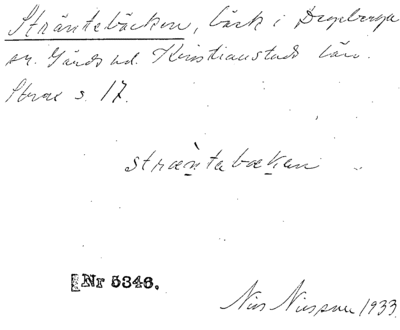 Sträntebäcken, bäck i Degeberga
sn. Gärds hd. Kristianstads län.
s. 17.
stræntabækan
[Nr 5346.
Nils Nilsson 1933.